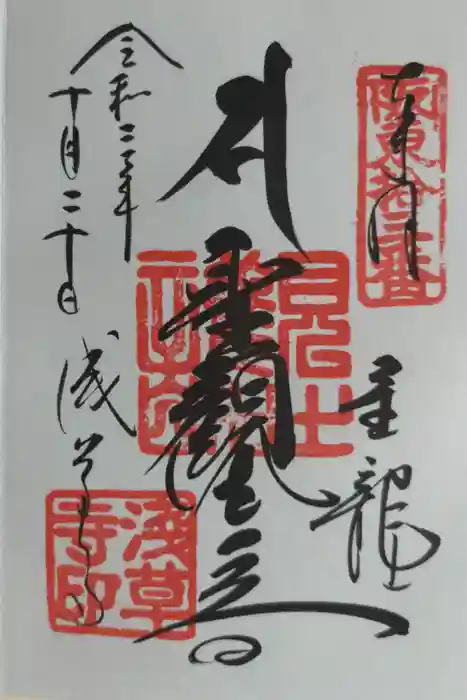 奉拝
坂東拾三番
金龍山
聖観世音
令和二年
十月二十日
浅草寺
浅草寺印